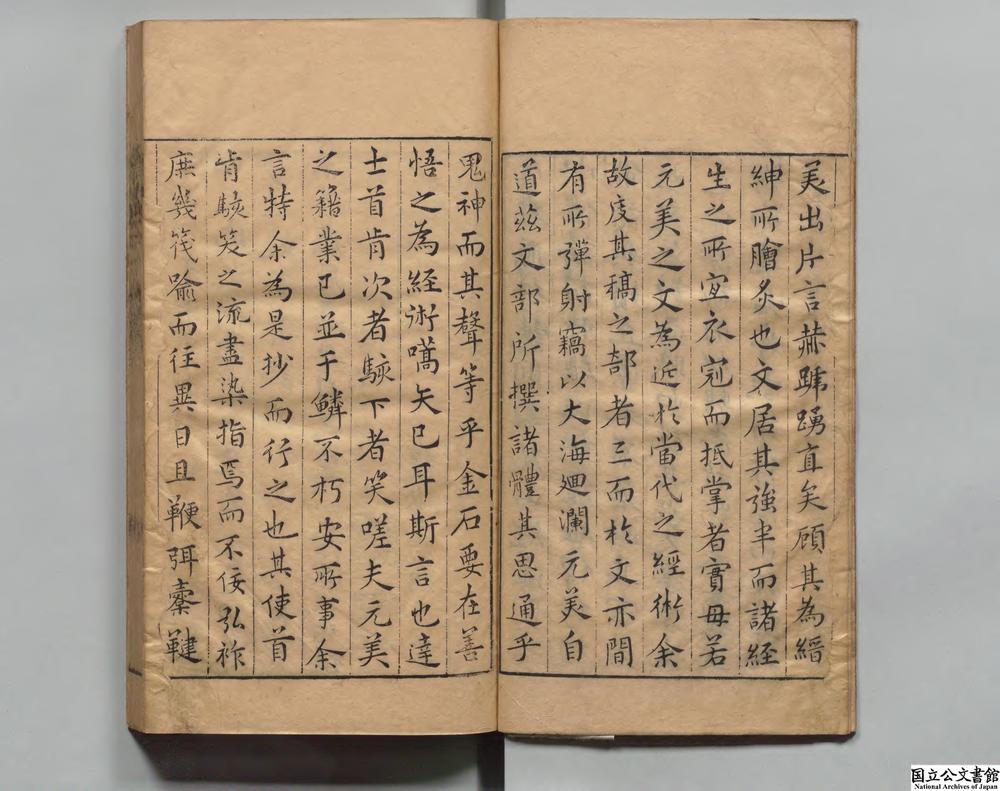 美出片言赫蹏踴直矣顧其為縉
紳所膾炙也文居其強半而諸経
生之所宜衣冠而抵掌者實毋若
元美之文為近於當代之經術余
故度其稿之部者三而於文亦間
有所彈射竊以大海廻瀾元美自
道茲文部所撰諸體其思通乎
鬼神而其聲等乎金石要在善
悟之為經術嚆矢已耳斯言也達
士首肯次者駭下者笑嗟夫元美
之籍業已並于鱗不朽安所事余
言特余為是抄而行之也其使首
肯駭笑之流盡染指焉而不佞弘祚
庶幾筏喻而往異日且鞭弭櫜鞬
国立公文書館
National Archives of Japan